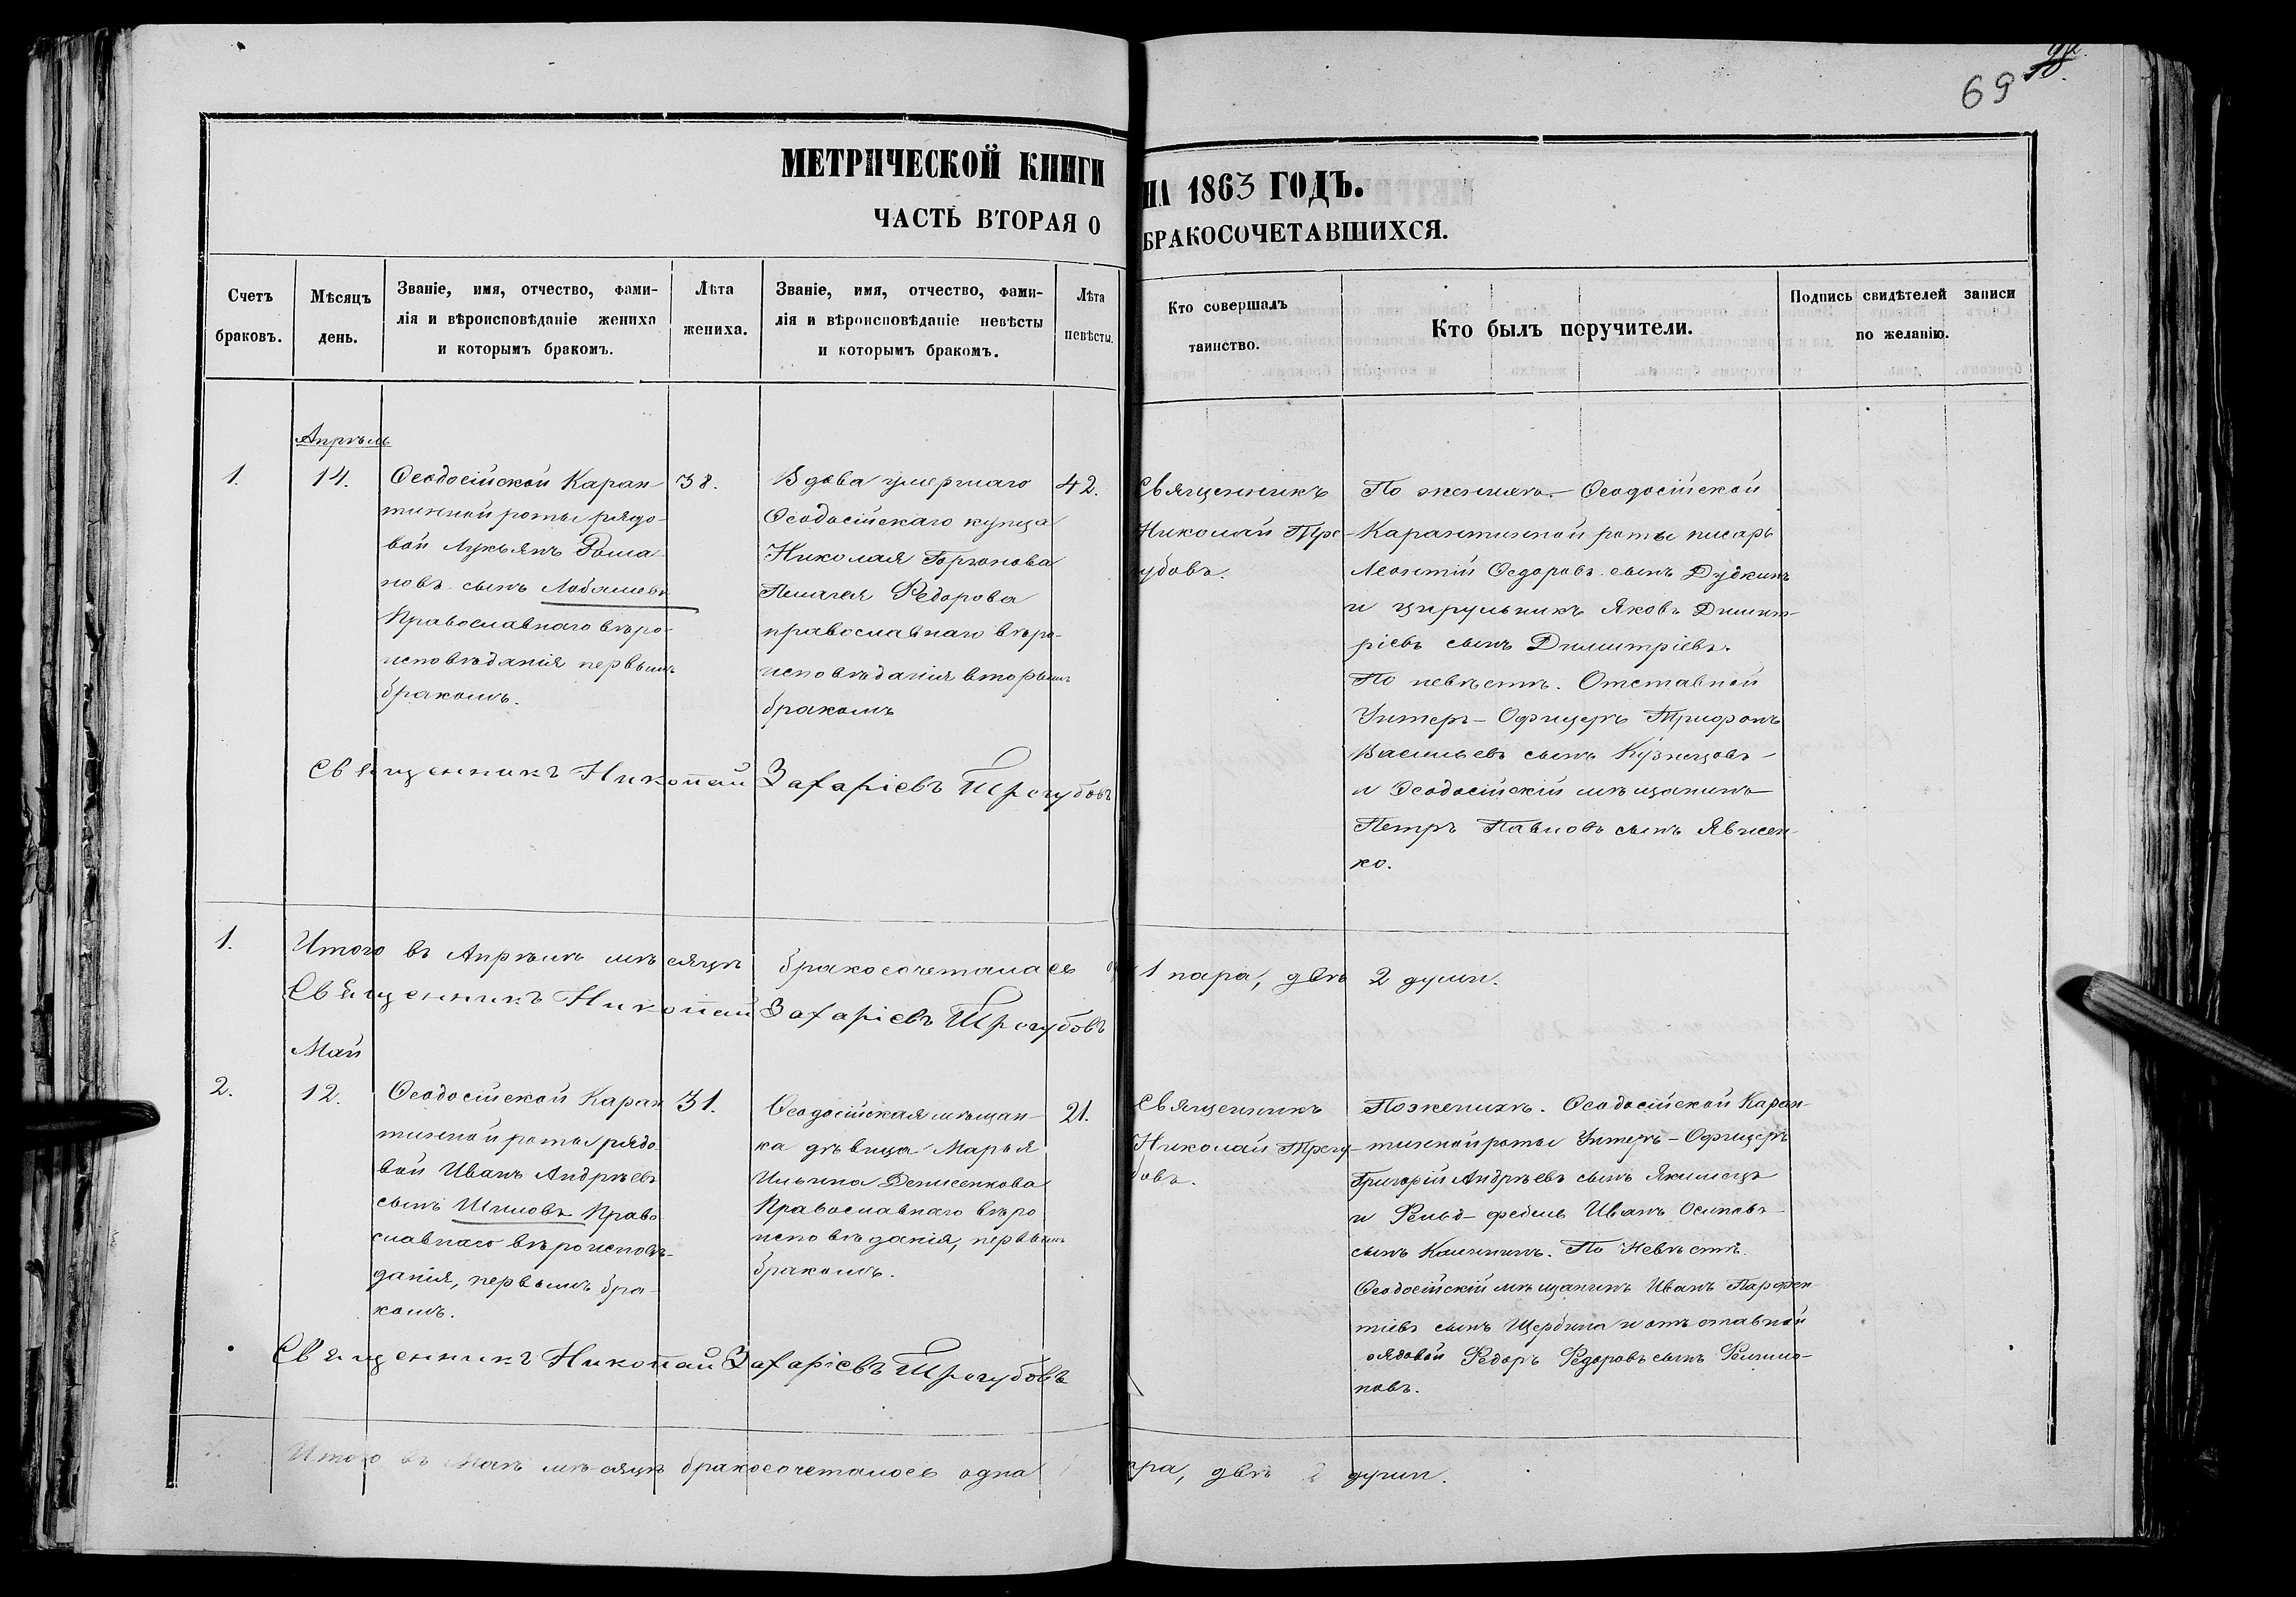 69
МЕТРИЧЕСКОЙ КНИГИ НА 1863 ГОДЪ.
ЧАСТЬ ВТОРАЯ О БРАКОСОЧЕТАВШИХСЯ.
Счетъ
браковъ.
Мѣсяцъ
день.
Званіе, имя, отчество, фами-
лія и вѣроисповѣданіе жениха
и которымъ бракомъ.
Лѣта
жениха.
Званіе, имя, отчество, фами-
лія и вѣроисповѣданіе невѣсты
и которымъ бракомъ.
Лѣта
невѣсты.
Кто совершалъ
таинство.
Кто былъ поручители.
Подпись свидѣтелей записи
по желанію.
Апрѣль
1.
14.
Ѳеодосійской Каран-
тинной роты рядо-
вой Лукьянъ Рома-
новъ сынъ
Православнаго вѣро-
исповѣданія первымъ
бракомъ.
38.
Вдова умершаго
Ѳеодосійскаго купца
Николая
Пелагея Ѳедорова
православнаго вѣро-
исповѣданія вторымъ
бракомъ
42.
Священникъ
Николай Трегубовъ.
По женихѣ. Ѳеодосійской
Карантинной роты писарь
Леонтій Ѳедоровъ сынъ Дудкинъ
и цирульникъ Яковъ Димит-
ріевъ сынъ Димитріевъ.
По невѣстѣ. Отставной
Унтеръ-Офицеръ Трифонъ
Васильевъ сынъ Кузнецовъ
и Ѳеодосійскій мѣщанинъ
Петръ Павловъ сынъ
ко.
Священникъ Николай Захаріевъ Трегубовъ
1.
Итого въ Апрѣлѣ мѣсяцѣ бракосочеталась 1 пара, двѣ 2 души.
Священникъ Николай Захаріевъ Трегубовъ
Май
2.
12.
Ѳеодосійской Каран
тинной роты рядо-
вой Иванъ Андрѣевъ
сынъ Шиловъ Право-
славнаго вѣроисповѣ-
данія, первымъ бра-
комъ.
31.
Ѳеодосійская мѣщан-
ка дѣвица Марья
Ильина Денисенкова
Православнаго вѣро
исповѣданія, первымъ
бракомъ.
21.
Священникъ
Николай Трегу-
бовъ.
По женихѣ. Ѳеодосійской Каран-
тинной роты Унтеръ-Офицеръ
Григорій Андрѣевъ сынъ
и Иванъ Осиповъ
сынъ Калининъ. По Невѣстѣ.
Ѳеодосійскій мѣщанинъ Иванъ Парфен-
тіевъ сынъ Щербина и отставной
рядовой Ѳедоръ Ѳедоровъ сынъ
новъ.
Священникъ Николай Захаріевъ Трегубовъ
Итого въ Маѣ мѣсяцѣ бракосочеталось одна пара, двѣ 2 души.